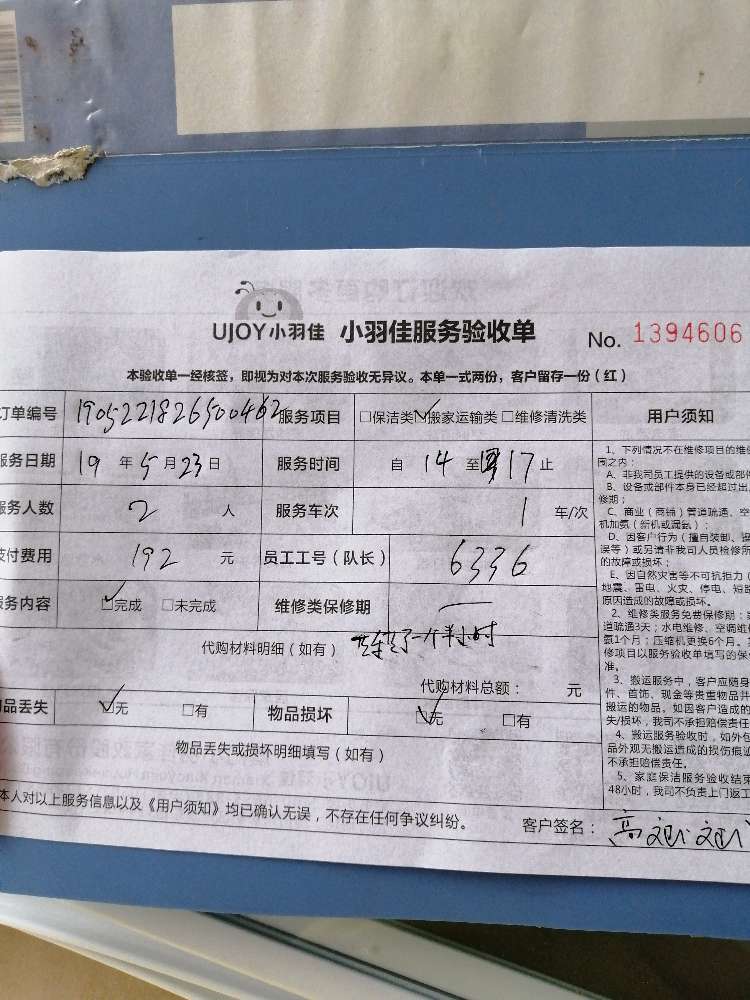 UJOY小羽佳 小羽佳服务验收单 No. 1394606
本验收单一经核签，即视为对本次服务验收无异议。本单一式两份，客户留存一份（红）
订单编号 190522182650046​2 服务项目 □保洁类 ☑搬家运输类 □维修清洗类 用户须知
服务日期 19 年 5 月 23 日 服务时间 自 14 至 17 止
服务人数 2 人 服务车次 1 车/次
支付费用 192 元 员工工号（队长） 6336
服务内容 ☑完成 □未完成 维修类保修期 —
代购材料明细（如有） 了一个半小时
代购材料总额： 元
物品丢失 ☑无 □有 物品损坏 ☑无 □有
物品丢失或损坏明细填写（如有）
本人对以上服务信息以及《用户须知》均已确认无误，不存在任何争议纠纷。 客户签名： 高
1、下列情况不在维修项目的维
同之内：
A、非我司员工提供的设备或部件
B、设备或部件本身已经超过出
修期；
C、商业（商铺）管道疏通、空
机加氨（新机或漏氨）；
D、因客户行为（擅自装卸、
误等）或另请非我司人员检修所
的故障或损坏；
E、因自然灾害等不可抗拒力（
地震、雷电、火灾、停电、短路
原因造成的故障或损坏。
2、维修类服务免费保修期：
道疏通3天；水电维修、空调维
氨1个月；压缩机更换6个月。
修项目以服务验收单填写的保
准。
3、搬运服务中，客户应随身
件、首饰、现金等贵重物品并
搬运的物品，如因客户造成的
失/损坏，我司不承担赔偿责任
4、搬运服务验收时，如外包
品外观无搬运造成的损伤痕迹
不承担赔偿责任。
5、家庭保洁服务验收结束
48小时，我司不负责上门返工